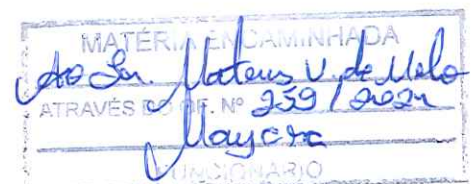 MATÉRIA ENCAMINHADA
Ao Sr. Mateus V. de Melo
ATRAVÉS DO OF. Nº 259 / 2021
Mayara
FUNCIONÁRIO